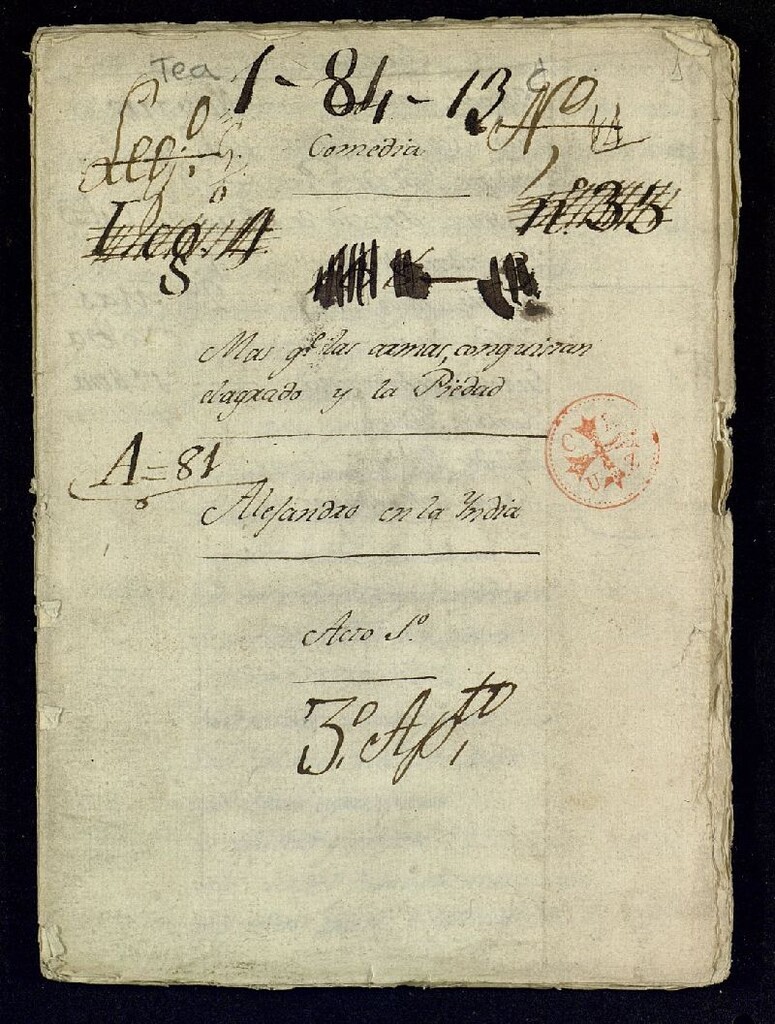 Tea
1-84-13
Leg.º
Nº
Comedia
Leg. 4
nº 33
8
Mas qᵉ las armas, conquistan
elagrado y la Piedad
A=81
Alejandro en la Yndia
Acto Iº
3º Apᵗᵒ